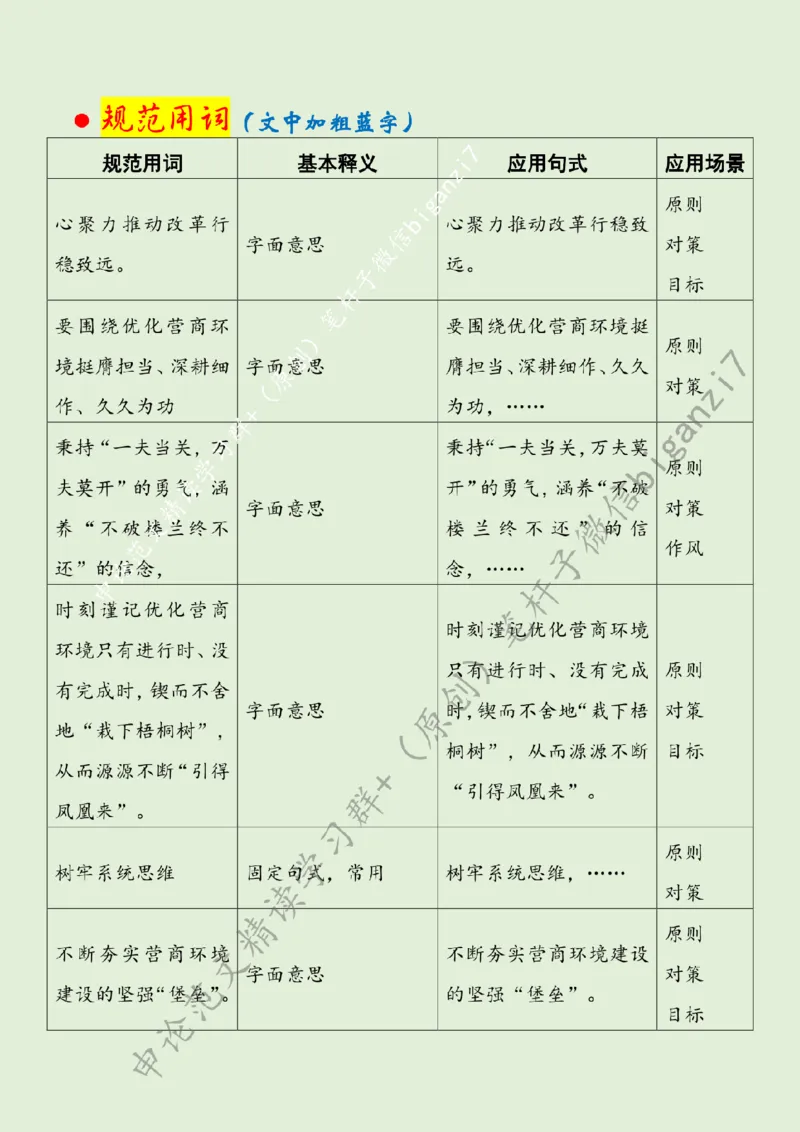 ● 规范用词（文中加粗蓝字）
规范用词 基本释义 应用句式 应用场景
心聚力推动改革行
稳致远。
字面意思
心聚力推动改革行稳致
远。
原则
对策
目标
要围绕优化营商环
境挺膺担当、深耕细
作、久久为功
字面意思
要围绕优化营商环境挺
膺担当、深耕细作、久久
为功，……
原则
对策
秉持“一夫当关，万
夫莫开”的勇气，涵
养“不破楼兰终不
还”的信念，
字面意思
秉持“一夫当关，万夫莫
开”的勇气，涵养“不破
楼兰终不还”的信
念，……
原则
对策
作风
时刻谨记优化营商
环境只有进行时、没
有完成时，锲而不舍
地“栽下梧桐树”，
从而源源不断“引得
凤凰来”。
字面意思
时刻谨记优化营商环境
只有进行时、没有完成
时，锲而不舍地“栽下梧
桐树”，从而源源不断
“引得凤凰来”。
原则
对策
目标
树牢系统思维
固定句式，常用
树牢系统思维，……
原则
对策
不断夯实营商环境
建设的坚强“堡垒”。
字面意思
不断夯实营商环境建设
的坚强“堡垒”。
原则
对策
目标
申论范文精读学习群+（原创）笔杆子微信biganzi7
申论范文精读学习群+（原创）笔杆子微信biganzi7